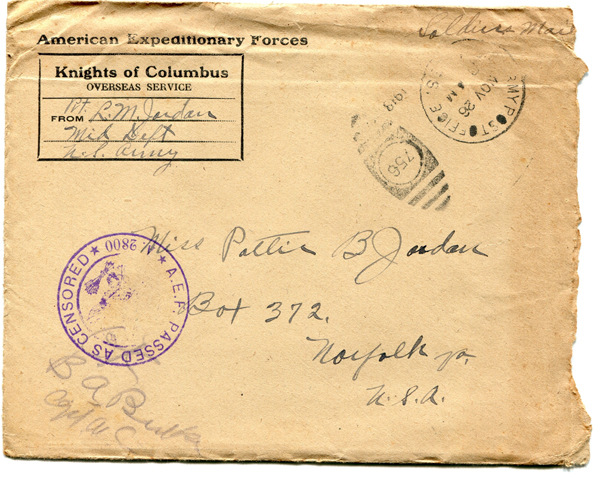 Soldiers Mail
American Expeditionary Forces
Knights of Columbus
OVERSEAS SERVICE
FROM Pvt. R. M. Jordan
Med Dept
U.S. Army
ARMY POST OFFICE
NOV 26
AM
1918
756
Miss Pattie B Jordan
Box 372.
Norfolk Va.
U.S.A.
A.E.F. PASSED AS CENSORED
2800
B A